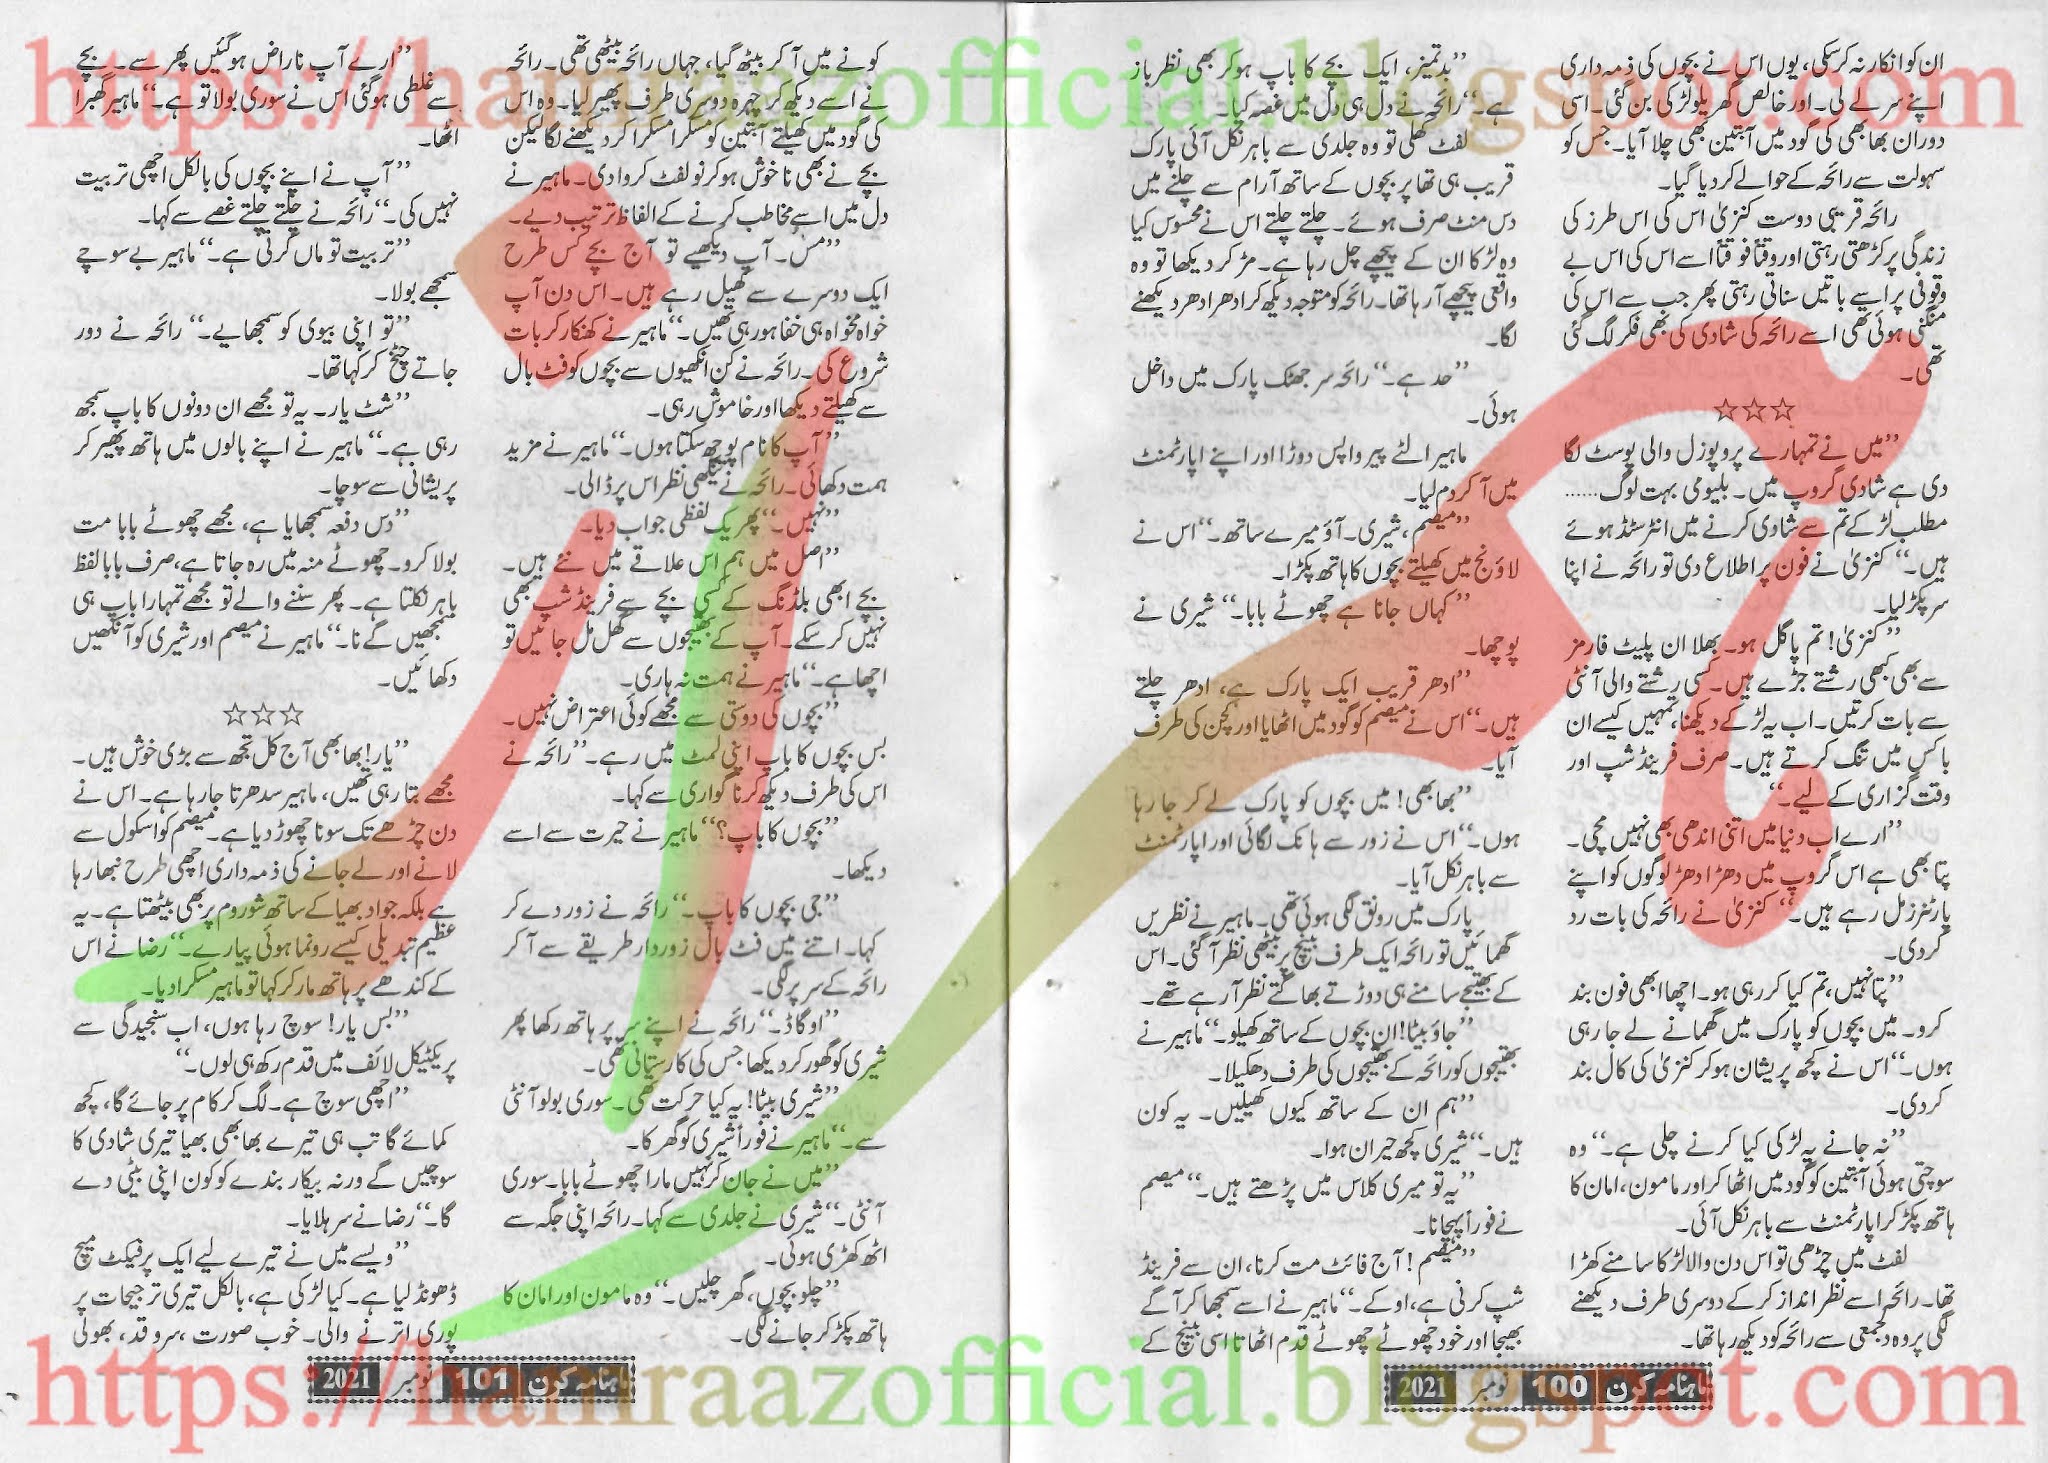 https://hamraazofficial.blogspot.com
ان کو انکار نہ کر سکی، یوں اس نے بچوں کی ذمہ داری
اپنے سر لے لی۔ اور خالص گھریلو لڑکی بن گئی۔ اسی
دوران بھابھی کی گود میں آبتین بھی چلا آیا۔ جس کو
سہولت سے رائحہ کے حوالے کر دیا گیا۔
رائحہ قریبی دوست کنزیٰ اس کی اس طرز کی
زندگی پر کڑھتی رہتی اور وقتاً فوقتاً اسے اس کی اس بے
وقوفی پر ایسے باتیں سناتی رہتی پھر جب سے اس کی
منگنی ہوئی تھی اسے رائحہ کی شادی کی بھی فکر لگ گئی
تھی۔
☆☆☆
”میں نے تمہارے پروپوزل والی پوسٹ لگا
دی ہے شادی گروپ میں۔ بلیومی بہت لوگ......
مطلب لڑکے تم سے شادی کرنے میں انٹرسٹڈ ہوئے
ہیں۔“ کنزیٰ نے فون پر اطلاع دی تو رائحہ نے اپنا
سر پکڑ لیا۔
”کنزیٰ! تم پاگل ہو۔ بھلا ان پلیٹ فارمز
سے بھی کبھی رشتے جڑے ہیں۔ کسی رشتے والی آنٹی
سے بات کرتیں۔ اب یہ لڑکے دیکھنا، تمہیں کیسے ان
باکس میں تنگ کرتے ہیں۔ صرف فرینڈ شپ اور
وقت گزاری کے لیے۔“
”ارے اب دنیا میں اتنی اندھی بھی نہیں مچی۔
پتا بھی ہے اس گروپ میں دھڑا دھڑ لوگوں کو اپنے
پارٹنرز مل رہے ہیں۔“ کنزیٰ نے رائحہ کی بات رد
کر دی۔
”پتا نہیں، تم کیا کر رہی ہو۔ اچھا ابھی فون بند
کرو۔ میں بچوں کو پارک میں گھمانے لے جا رہی
ہوں۔“ اس نے کچھ پریشان ہو کر کنزیٰ کی کال بند
کر دی۔
”نہ جانے یہ لڑکی کیا کرنے چلی ہے۔“ وہ
سوچتی ہوئی آبتین کو گود میں اٹھا کر اور مامون، امان کا
ہاتھ پکڑ کر اپارٹمنٹ سے باہر نکل آئی۔
لفٹ میں چڑھی تو اس دن والا لڑکا سامنے کھڑا
تھا۔ رائحہ اسے نظر انداز کر کے دوسری طرف دیکھنے
لگی پر وہ دلجمعی سے رائحہ کو دیکھ رہا تھا۔
”بدتمیز، ایک بچے کا باپ ہو کر بھی نظر باز
ہے۔“ رائحہ نے دل ہی دل میں غصہ کیا۔
لفٹ کھلی تو وہ جلدی سے باہر نکل آئی پارک
قریب ہی تھا پر بچوں کے ساتھ آرام سے چلنے میں
دس منٹ صرف ہوئے۔ چلتے چلتے اس نے محسوس کیا
وہ لڑکا ان کے پیچھے چل رہا ہے۔ مڑ کر دیکھا تو وہ
واقعی پیچھے آ رہا تھا۔ رائحہ کو متوجہ دیکھ کر ادھر ادھر دیکھنے
لگا۔
”حد ہے۔“ رائحہ سر جھٹک پارک میں داخل
ہوئی۔
ماہیر الٹے پیر واپس دوڑا اور اپنے اپارٹمنٹ
میں آ کر دم لیا۔
”میصم، شیری۔ آؤ میرے ساتھ۔“ اس نے
لاؤنج میں کھیلتے بچوں کا ہاتھ پکڑا۔
”کہاں جانا ہے چھوٹے بابا۔“ شیری نے
پوچھا۔
”ادھر قریب ایک پارک ہے، ادھر چلتے
ہیں۔“ اس نے میصم کو گود میں اٹھایا اور کچن کی طرف
آیا۔
”بھابھی! میں بچوں کو پارک لے کر جا رہا
ہوں۔“ اس نے زور سے ہانک لگائی اور اپارٹمنٹ
سے باہر نکل آیا۔
پارک میں رونق لگی ہوئی تھی۔ ماہیر نے نظریں
گھمائیں تو رائحہ ایک طرف بینچ پر بیٹھی نظر آ گئی۔ اس
کے بھتیجے سامنے ہی دوڑتے بھاگتے نظر آ رہے تھے۔
”جاؤ بیٹا! ان بچوں کے ساتھ کھیلو۔“ ماہیر نے
بھتیجوں کو رائحہ کے بھتیجوں کی طرف دھکیلا۔
”ہم ان کے ساتھ کیوں کھیلیں۔ یہ کون
ہیں۔“ شیری کچھ حیران ہوا۔
”یہ تو میری کلاس میں پڑھتے ہیں۔“ میصم
نے فوراً پہچانا۔
”میصم! آج فائٹ مت کرنا، ان سے فرینڈ
شپ کرنی ہے، اوکے۔“ ماہیر نے اسے سمجھا کر آگے
بھیجا اور خود چھوٹے چھوٹے قدم اٹھاتا اسی بینچ کے
ماہنامہ کرن 100 نومبر 2021
کونے میں آ کر بیٹھ گیا، جہاں رائحہ بیٹھی تھی۔ رائحہ
نے اسے دیکھ کر چہرہ دوسری طرف پھیر لیا۔ وہ اس
کی گود میں کھیلتے آبتین کو مسکرا مسکرا کر دیکھنے لگا لیکن
بچے نے بھی ناخوش ہو کر نو لفٹ کروا دی۔ ماہیر نے
دل میں اسے مخاطب کرنے کے الفاظ ترتیب دیے۔
”مس۔ آپ دیکھیے تو آج بچے کس طرح
ایک دوسرے سے کھیل رہے ہیں۔ اس دن آپ
خواہ مخواہ ہی خفا ہو رہی تھیں۔“ ماہیر نے کھنکار کر بات
شروع کی۔ رائحہ نے کن انکھیوں سے بچوں کو فٹ بال
سے کھیلتے دیکھا اور خاموش رہی۔
”آپ کا نام پوچھ سکتا ہوں۔“ ماہیر نے مزید
ہمت دکھائی۔ رائحہ نے تیکھی نظر اس پر ڈالی۔
”نہیں۔“ پھر یک لفظی جواب دیا۔
”اصل میں ہم اس علاقے میں نئے ہیں۔
بچے ابھی بلڈنگ کے کسی بچے سے فرینڈ شپ بھی
نہیں کر سکے۔ آپ کے بھتیجوں سے گھل مل جائیں تو
اچھا ہے۔“ ماہیر نے ہمت نہ ہاری۔
”بچوں کی دوستی سے مجھے کوئی اعتراض نہیں۔
بس بچوں کا باپ اپنی لمٹ میں رہے۔“ رائحہ نے
اس کی طرف دیکھ کر ناگواری سے کہا۔
”بچوں کا باپ؟“ ماہیر نے حیرت سے اسے
دیکھا۔
”جی بچوں کا باپ۔“ رائحہ نے زور دے کر
کہا۔ اتنے میں فٹ بال زوردار طریقے سے آ کر
رائحہ کے سر پر لگی۔
”او گاڈ۔“ رائحہ نے اپنے سر پر ہاتھ رکھا پھر
شیری کو گھور کر دیکھا جس کی کارستانی تھی۔
”شیری بیٹا! یہ کیا حرکت تھی۔ سوری بولو آنٹی
سے۔“ ماہیر نے فوراً شیری کو گھرکا۔
”میں نے جان کر نہیں مارا چھوٹے بابا۔ سوری
آنٹی۔“ شیری نے جلدی سے کہا۔ رائحہ اپنی جگہ سے
اٹھ کھڑی ہوئی۔
”چلو بچوں، گھر چلیں۔“ وہ مامون اور امان کا
ہاتھ پکڑ کر جانے لگی۔
”ارے آپ ناراض ہو گئیں پھر سے۔ بچے
سے غلطی ہو گئی اس نے سوری بولا تو ہے۔“ ماہیر گھبرا
اٹھا۔
”آپ نے اپنے بچوں کی بالکل اچھی تربیت
نہیں کی۔“ رائحہ نے چلتے چلتے غصے سے کہا۔
”تربیت تو ماں کرتی ہے۔“ ماہیر بے سوچے
سمجھے بولا۔
”تو اپنی بیوی کو سمجھایے۔“ رائحہ نے دور
جاتے چیخ کر کہا تھا۔
”شٹ یار۔ یہ تو مجھے ان دونوں کا باپ سمجھ
رہی ہے۔“ ماہیر نے اپنے بالوں میں ہاتھ پھیر کر
پریشانی سے سوچا۔
”دس دفعہ سمجھایا ہے، مجھے چھوٹے بابا مت
بولا کرو۔ چھوٹے منہ میں رہ جاتا ہے، صرف بابا لفظ
باہر نکلتا ہے۔ پھر سننے والے تو مجھے تمہارا باپ ہی
سمجھیں گے نا۔“ ماہیر نے میصم اور شیری کو آنکھیں
دکھائیں۔
☆☆☆
”یار! بھابھی آج کل تجھ سے بڑی خوش ہیں۔
مجھے بتا رہی تھیں، ماہیر سدھرتا جا رہا ہے۔ اس نے
دن چڑھے تک سونا چھوڑ دیا ہے۔ میصم کو اسکول سے
لانے اور لے جانے کی ذمہ داری اچھی طرح نبھا رہا
ہے بلکہ جواد بھیا کے ساتھ شوروم پر بھی بیٹھتا ہے۔ یہ
عظیم تبدیلی کیسے رونما ہوئی پیارے۔“ رضا نے اس
کے کندھے پر ہاتھ مار کر کہا تو ماہیر مسکرا دیا۔
”بس یار! سوچ رہا ہوں، اب سنجیدگی سے
پریکٹیکل لائف میں قدم رکھ ہی لوں۔“
”اچھی سوچ ہے۔ لگ کر کام پر جائے گا، کچھ
کمائے گا تب ہی تیرے بھابھی بھیا تیری شادی کا
سوچیں گے ورنہ بیکار بندے کو کون اپنی بیٹی دے
گا۔“ رضا نے سر ہلایا۔
”ویسے میں نے تیرے لیے ایک پرفیکٹ میچ
ڈھونڈ لیا ہے۔ کیا لڑکی ہے، بالکل تیری ترجیحات پر
پوری اترنے والی۔ خوب صورت، سرو قد، بھولی
ماہنامہ کرن 101 نومبر 2021
https://hamraazofficial.blogspot.com
ہمراز